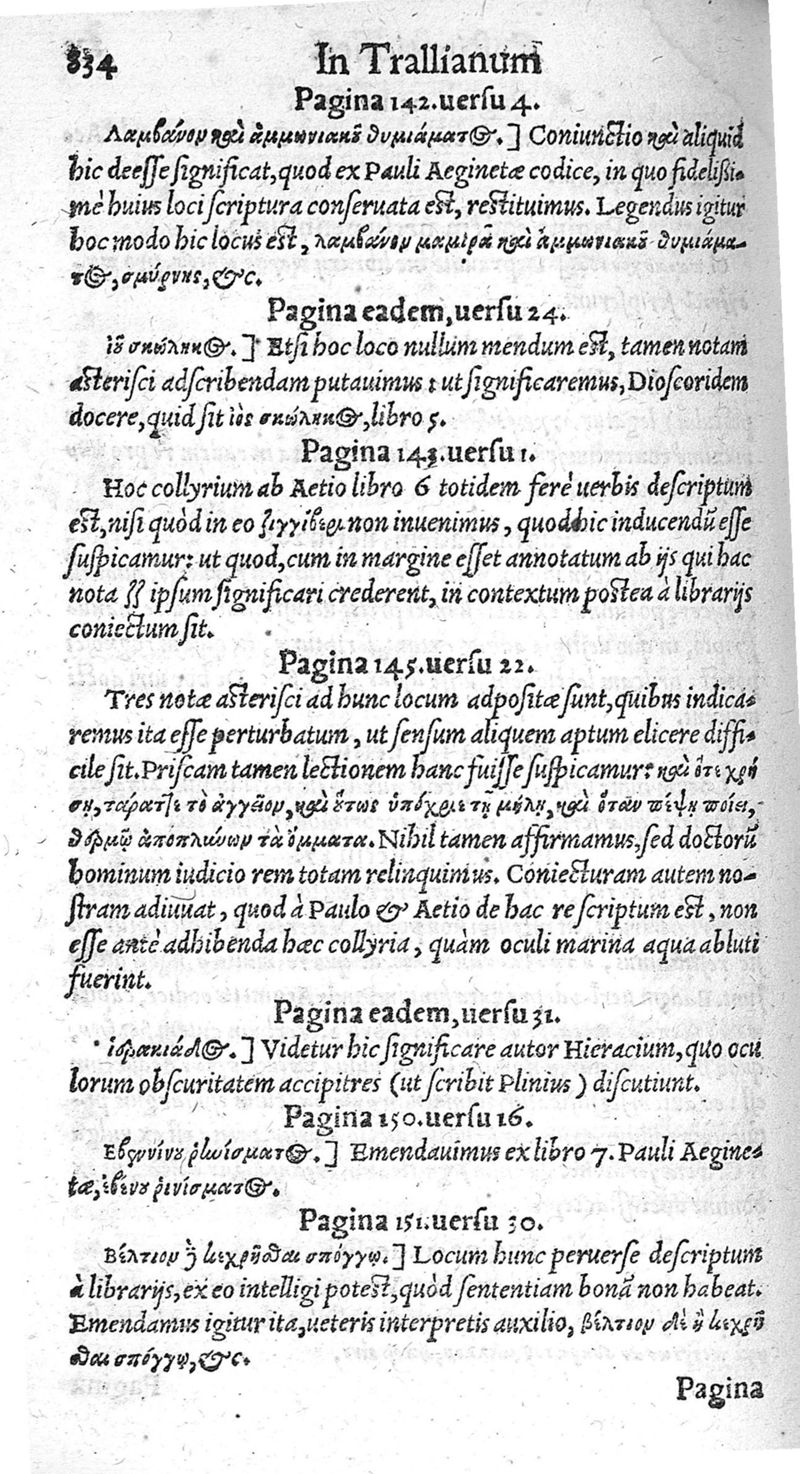 834 In Trallianum
Pagina 142. uersu 4.
Λαμβάνον καὶ ἀμμωνιακοῦ θυμιάματος.] Coniunctio καὶ aliquid
hic deesse significat, quod ex Pauli Aeginetæ codice, in quo fidelißi-
mè huius loci scriptura conseruata est, restituimus. Legendus igitur
hoc modo hic locus est, λαμβάνον μαμιρᾶ καὶ ἀμμωνιακοῦ θυμιάμα-
τος, σμύρνης, &c.
Pagina eadem, uersu 24.
ἰοῦ σκώληκος.] Etsi hoc loco nullum mendum est, tamen notam
asterisci adscribendam putauimus: ut significaremus, Dioscoridem
docere, quid sit ἰὸς σκώληκος, libro 5.
Pagina 143. uersu 1.
Hoc collyrium ab Aetio libro 6 totidem ferè uerbis descriptum
est, nisi quòd in eo ζιγγίβερι non inuenimus, quod hic inducendũ esse
suspicamur: ut quod, cum in margine esset annotatum ab ijs qui hac
nota ζζ ipsum significari crederent, in contextum postea à librarijs
coniectum sit.
Pagina 145. uersu 22.
Tres notæ asterisci ad hunc locum adpositæ sunt, quibus indica-
remus ita esse perturbatum, ut sensum aliquem aptum elicere diffi-
cile sit. Priscam tamen lectionem hanc fuisse suspicamur: καὶ ὅτε χρή
σῃ, τάραττε τὸ ἀγγεῖον, καὶ οὕτως ὑπόχριε τῇ μήλῃ, καὶ ὅταν πέψῃ ποίει,
θερμῷ ἀποπλύνων τὰ ὄμματα. Nihil tamen affirmamus, sed doctorũ
hominum iudicio rem totam relinquimus. Coniecturam autem no-
stram adiuuat, quod à Paulo & Aetio de hac re scriptum est, non
esse antè adhibenda hæc collyria, quàm oculi marina aqua abluti
fuerint.
Pagina eadem, uersu 31.
ἱερακιάδος.] Videtur hic significare autor Hieracium, quo ocu
lorum obscuritatem accipitres (ut scribit Plinius) discutiunt.
Pagina 150. uersu 16.
ῥινίσματος.] Emendauimus ex libro 7. Pauli Aegine-
tæ, ἐβένου ῥινίσματος.
Pagina 151. uersu 30.
Βέλτιον κεχρῆσθαι σπόγγῳ.] Locum hunc peruerse descriptum
à librarijs, ex eo intelligi potest, quòd sententiam bonã non habeat.
Emendamus igitur ita, ueteris interpretis auxilio, βέλτιον δὲ κεχρῆ
σθαι σπόγγῳ, &c.
Pagina